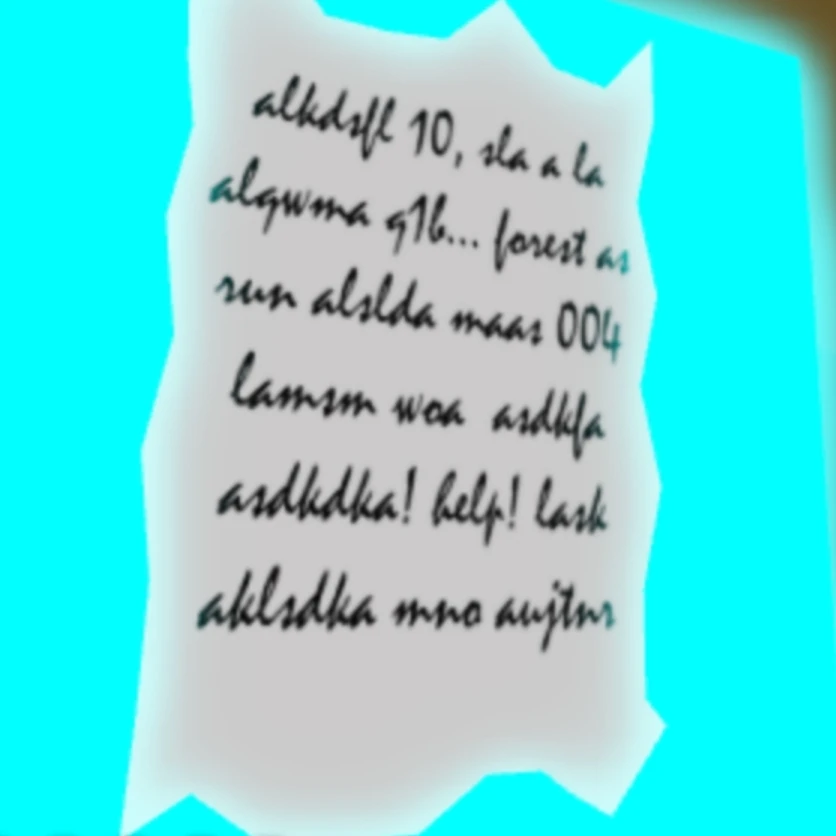 alkdsfl 10, sla a la
alqwma q1b... forest as
run alslda maas 004
lamsm woa asdkfa
asdkdka! help! lask
aklsdka mno aujtnr